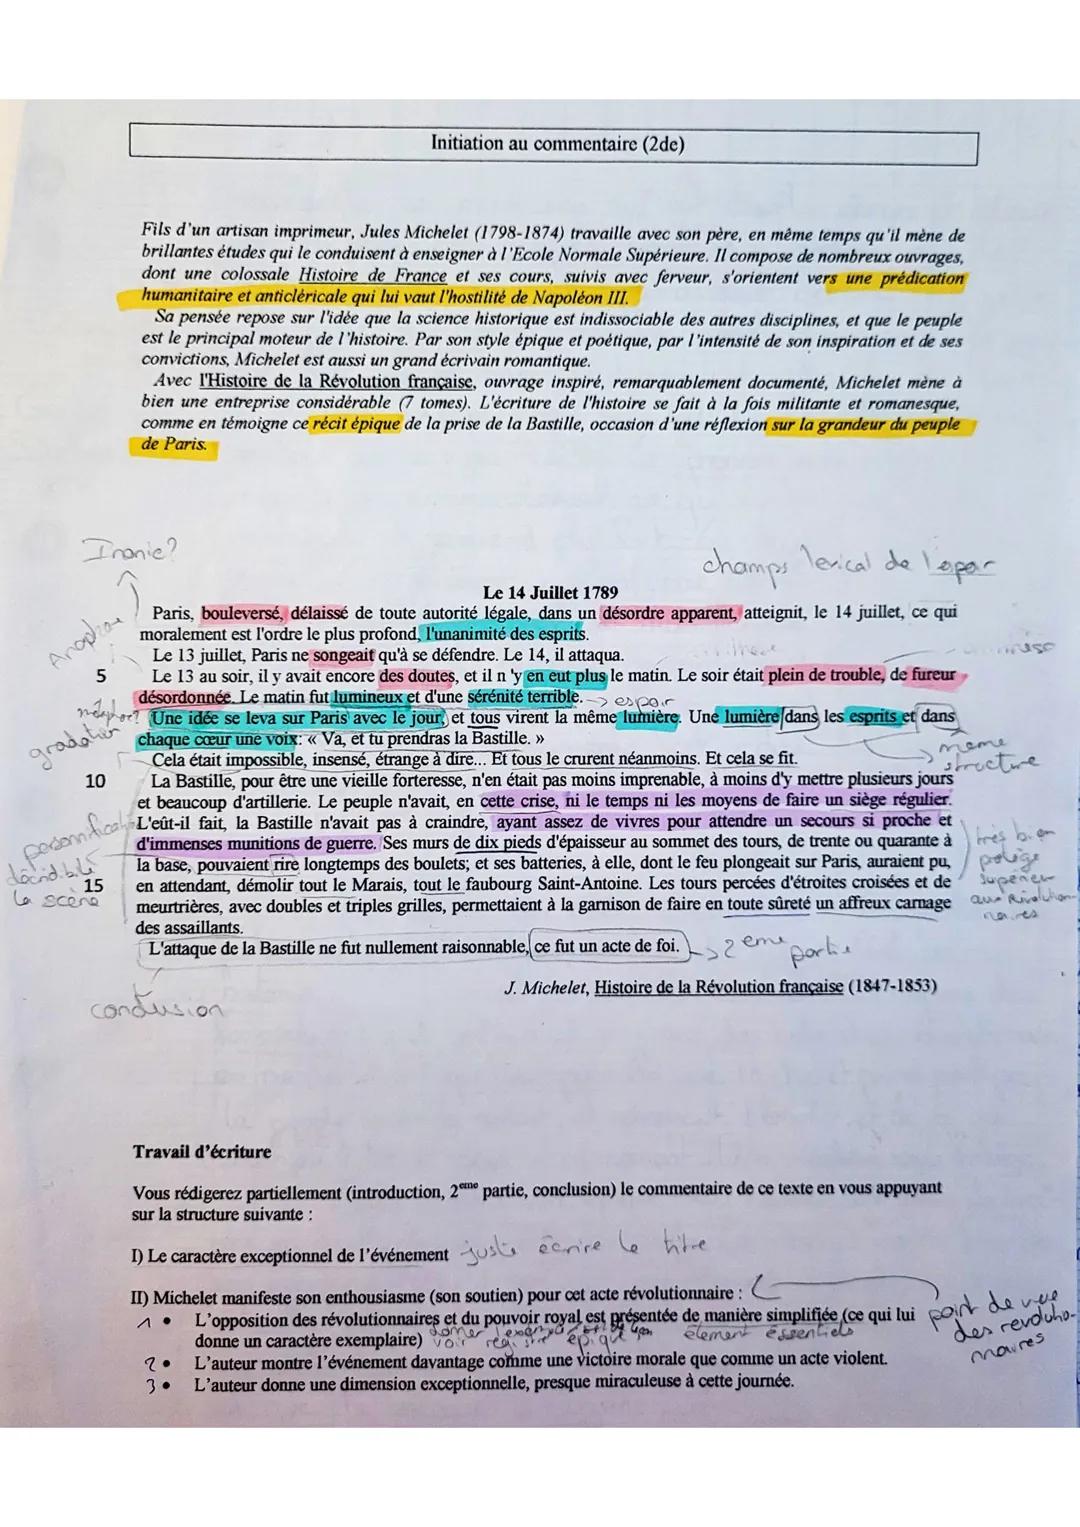 Initiation au commentaire (2de)
Fils d'un artisan imprimeur, Jules Michelet (1798-1874) travaille avec son père, en même temps qu'il mène de
brillantes études qui le conduisent à enseigner à l'Ecole Normale Supérieure. Il compose de nombreux ouvrages,
dont une colossale Histoire de France et ses cours, suivis avec ferveur, s'orientent vers une prédication
humanitaire et anticléricale qui lui vaut l'hostilité de Napoléon III.
Sa pensée repose sur l'idée que la science historique est indissociable des autres disciplines, et que le peuple
est le principal moteur de l'histoire. Par son style épique et poétique, par l'intensité de son inspiration et de ses
convictions, Michelet est aussi un grand écrivain romantique.
Avec l'Histoire de la Révolution française, ouvrage inspiré, remarquablement documenté, Michelet mène à
bien une entreprise considérable (7 tomes). L'écriture de l'histoire se fait à la fois militante et romanesque,
comme en témoigne ce récit épique de la prise de la Bastille, occasion d'une réflexion sur la grandeur du peuple
de Paris.
Ironie?
champs lexical de l'espoir
Le 14 Juillet 1789
Paris, bouleversé, délaissé de toute autorité légale, dans un désordre apparent, atteignit, le 14 juillet, ce qui
Anaphore
moralement est l'ordre le plus profond, l'unanimité des esprits.
Le 13 juillet, Paris ne songeait qu'à se défendre. Le 14, il attaqua.
5 Le 13 au soir, il y avait encore des doutes, et il n 'y en eut plus le matin. Le soir était plein de trouble, de fureur
désordonnée. Le matin fut lumineux et d'une sérénité terrible. espoir
métaphore? Une idée se leva sur Paris avec le jour, et tous virent la même lumière. Une lumière dans les esprits et dans
gradation chaque cœur une voix: « Va, et tu prendras la Bastille. »
même structure
Cela était impossible, insensé, étrange à dire... Et tous le crurent néanmoins. Et cela se fit.
10 La Bastille, pour être une vieille forteresse, n'en était pas moins imprenable, à moins d'y mettre plusieurs jours
et beaucoup d'artillerie. Le peuple n'avait, en cette crise, ni le temps ni les moyens de faire un siège régulier.
L'eût-il fait, la Bastille n'avait pas à craindre, ayant assez de vivres pour attendre un secours si proche et
personnification
d'immenses munitions de guerre. Ses murs de dix pieds d'épaisseur au sommet des tours, de trente ou quarante à
la base, pouvaient rire longtemps des boulets; et ses batteries, à elle, dont le feu plongeait sur Paris, auraient pu,
15 en attendant, démolir tout le Marais, tout le faubourg Saint-Antoine. Les tours percées d'étroites croisées et de
la scène
meurtrières, avec doubles et triples grilles, permettaient à la garnison de faire en toute sûreté un affreux carnage
des assaillants.
très bien
supérieur
aux Révolution-
naires
L'attaque de la Bastille ne fut nullement raisonnable, ce fut un acte de foi. 2eme partie
J. Michelet, Histoire de la Révolution française (1847-1853)
conclusion
Travail d'écriture
Vous rédigerez partiellement (introduction, 2eme partie, conclusion) le commentaire de ce texte en vous appuyant
sur la structure suivante :
I) Le caractère exceptionnel de l'événement juste écrire le titre
II) Michelet manifeste son enthousiasme (son soutien) pour cet acte révolutionnaire :
point de vue
des revolutio-
nnaires
1 • L'opposition des révolutionnaires et du pouvoir royal est présentée de manière simplifiée (ce qui lui
donne un caractère exemplaire) voir registre épique élement éssentiels
2 • L'auteur montre l'événement davantage comme une victoire morale que comme un acte violent.
3 • L'auteur donne une dimension exceptionnelle, presque miraculeuse à cette journée.